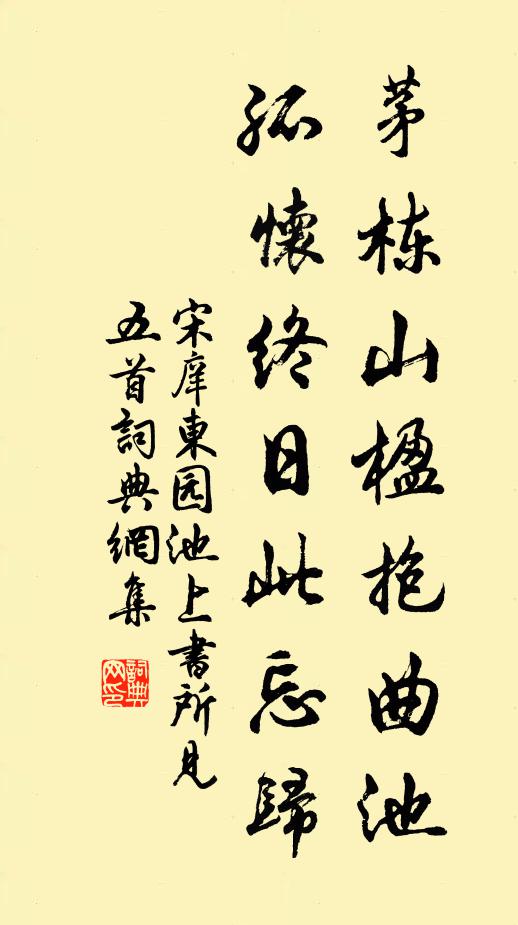 茅栋山楹抱曲池
孤懷終日此忘歸
宋庠東园池上書所見
五首詞典網集
詞典网印